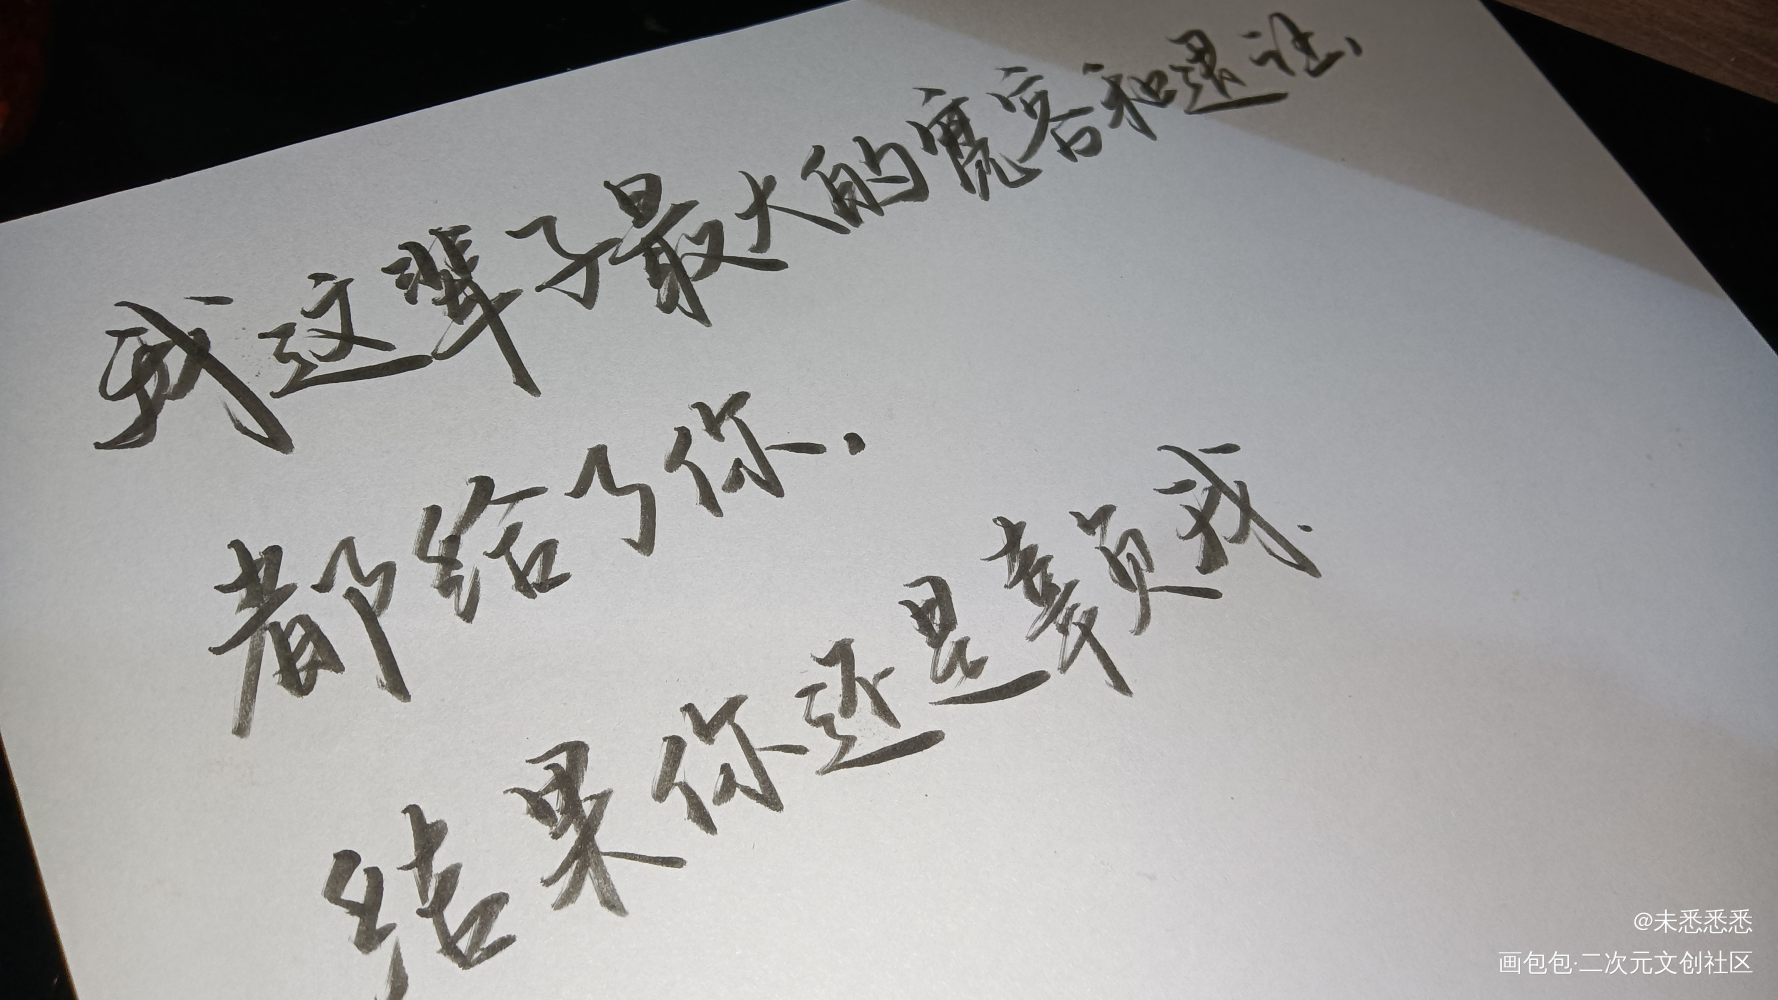 我这辈子最大的宽容和退让、
都给了你.
结果你还是辜负我.
@未悉悉悉
画包包·二次元文创社区